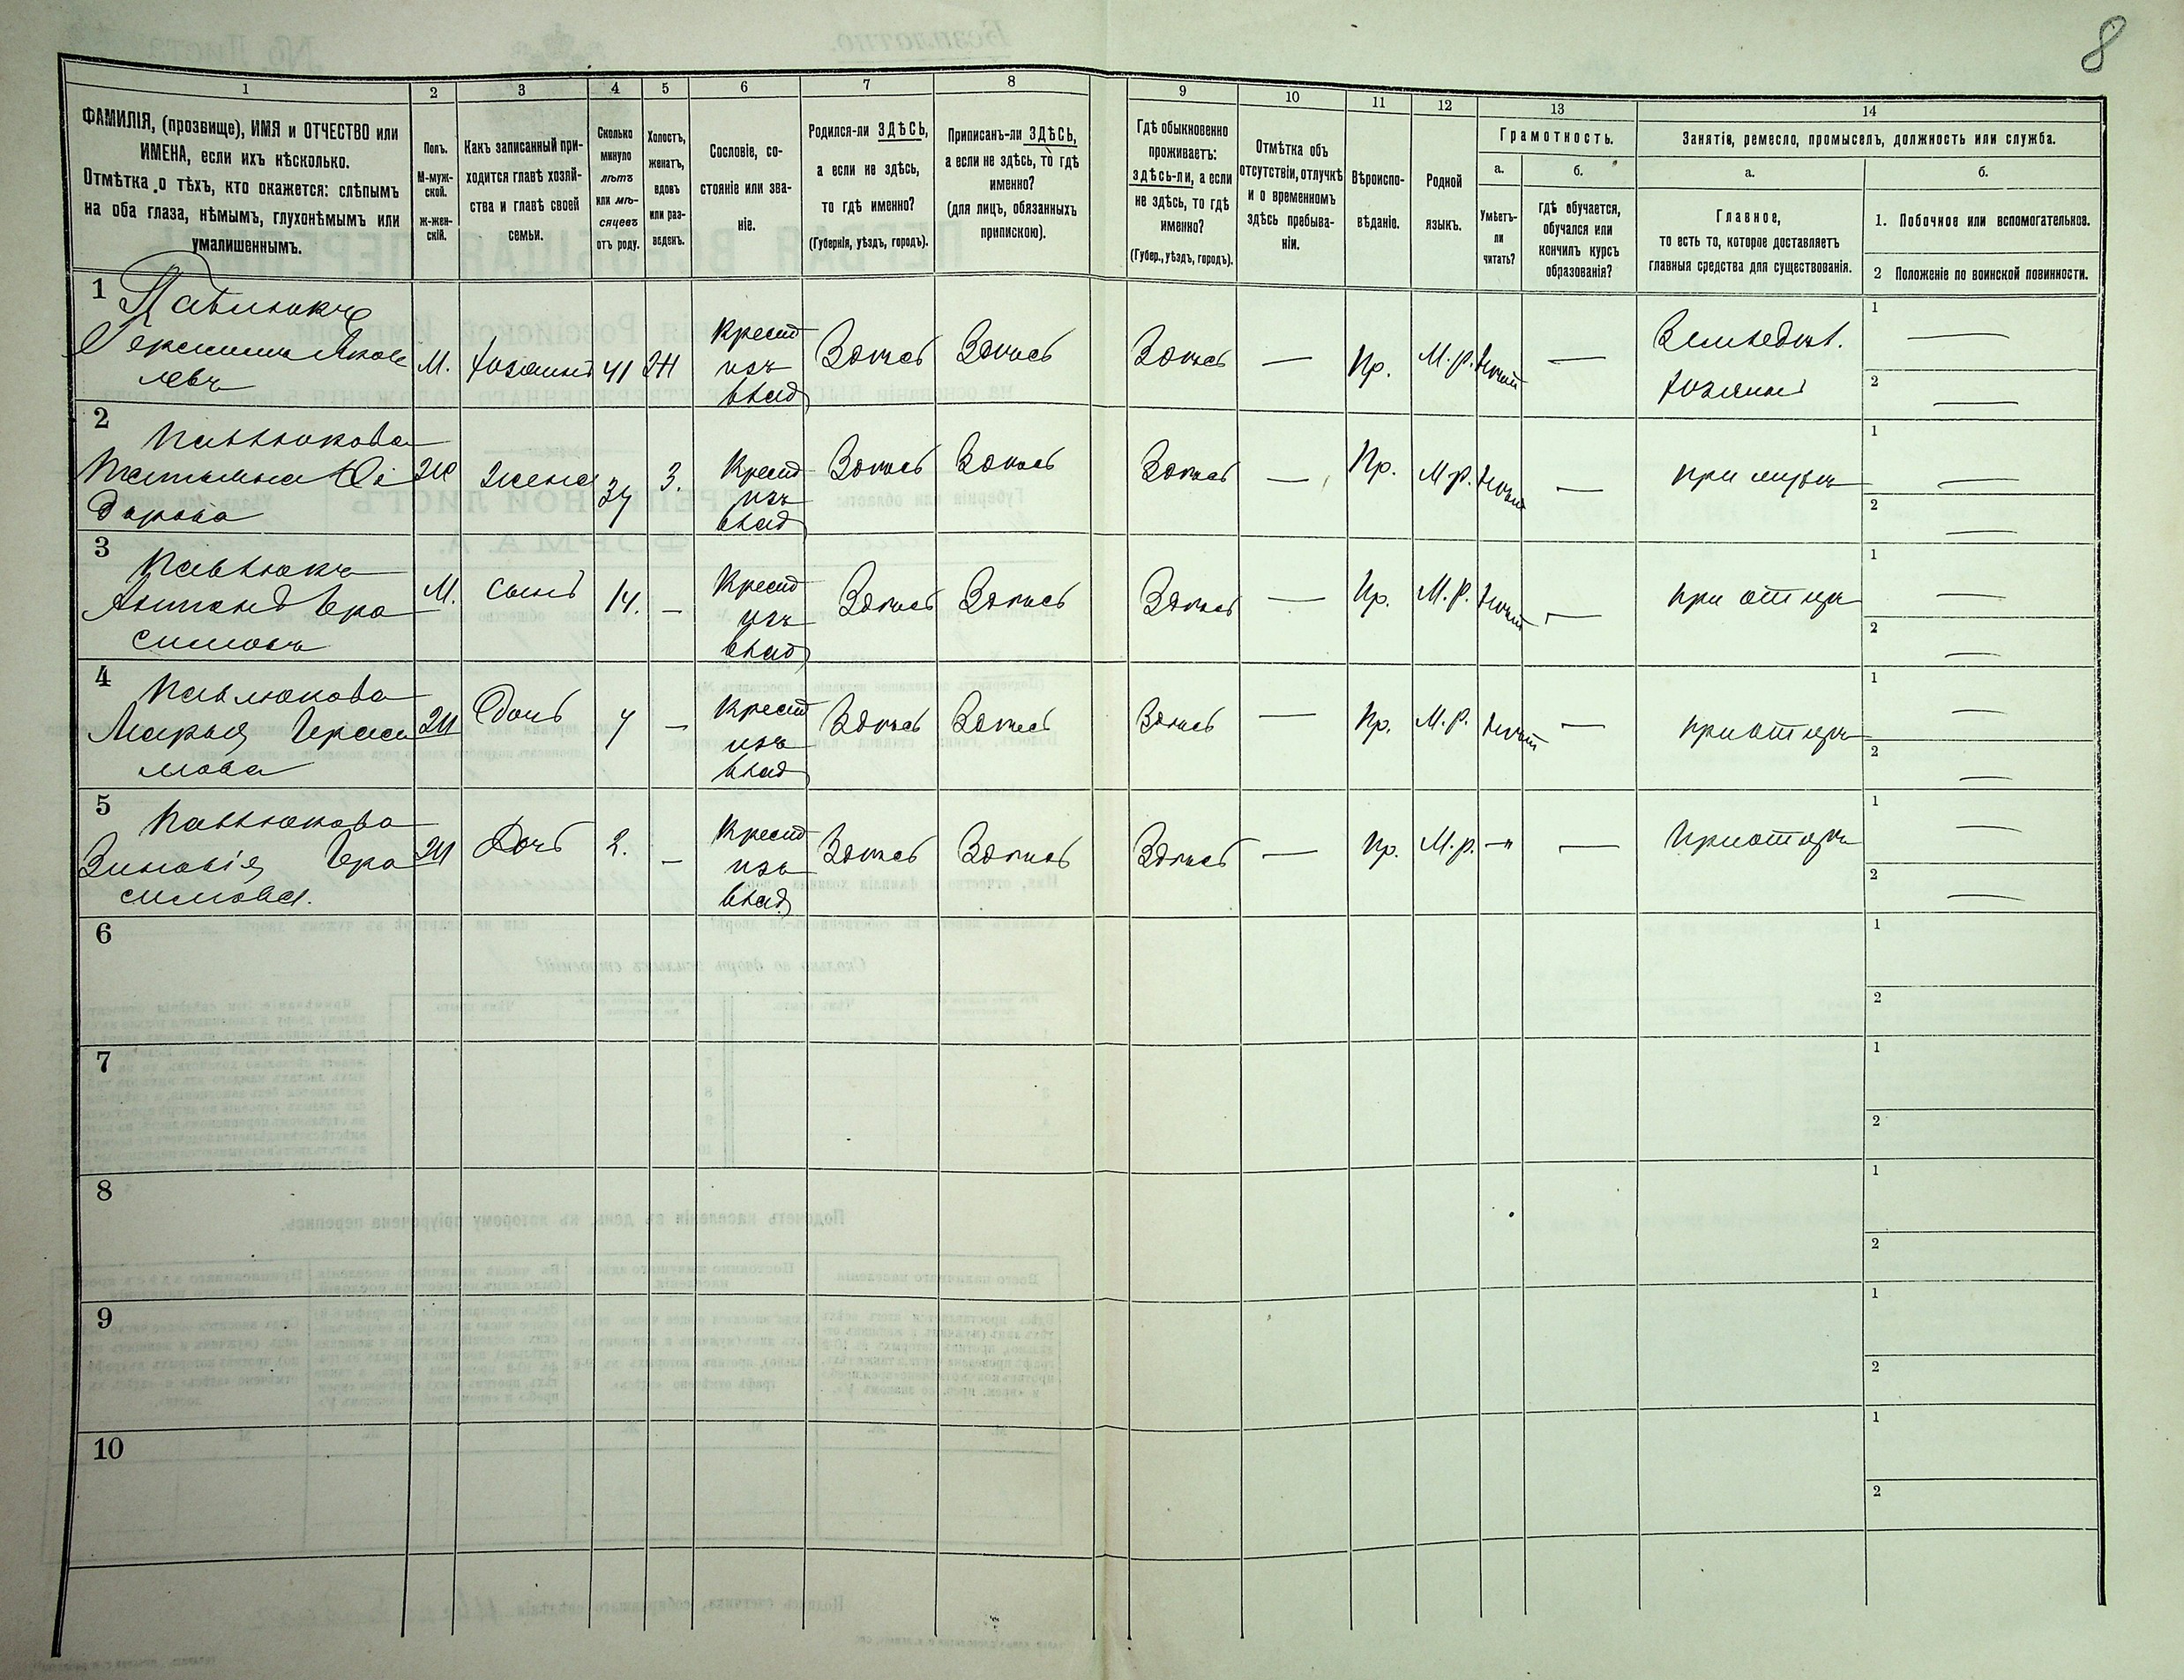 8
1
2
3
4
5
6
7
8
9
10
11
12
13
14
ФАМИЛІЯ, (прозвище), ИМЯ и ОТЧЕСТВО или
ИМЕНА, если ихъ нѣсколько.
Отмѣтка о тѣхъ, кто окажется: слѣпымъ
на оба глаза, нѣмымъ, глухонѣмымъ или
умалишеннымъ.
Полъ.
М-муж-
ской.
ж-жен-
скій.
Какъ записанный при-
ходится главѣ хозяй-
ства и главѣ своей
семьи.
Сколько
минуло
лѣтъ
или мѣ-
сяцевъ
отъ роду.
Холостъ,
женатъ,
вдовъ
или раз-
веденъ.
Сословіе, со-
стояніе или зва-
ніе.
Родился-ли ЗДѢСЬ,
а если не здѣсь,
то гдѣ именно?
(Губернія, уѣздъ, городъ).
Приписанъ-ли ЗДѢСЬ,
а если не здѣсь, то гдѣ
именно?
(для лицъ, обязанныхъ
припискою).
Гдѣ обыкновенно
проживаетъ:
здѣсь-ли, а если
не здѣсь, то гдѣ
именно?
(Губер., уѣздъ, городъ).
Отмѣтка объ
отсутствіи, отлучкѣ
и о временномъ
здѣсь пребыва-
ніи.
Вѣроиспо-
вѣданіе.
Родной
языкъ.
Грамотность.
а.
Умѣетъ-
ли
читать?
б.
гдѣ обучается,
обучался или
кончилъ курсъ
образованія?
Занятія, ремесло, промыселъ, должность или служба.
а.
Главное,
то есть то, которое доставляетъ
главныя средства для существованія.
б.
1. Побочное или вспомогательное.
2 Положеніе по воинской повинности.
1
Павлюкъ
Герасимъ Яков
левъ
М.
Хозяинъ
41
Ж
Крест
изъ
влад
Здѣсь
Здѣсь
Здѣсь
—
Пр.
М.р.
—
Земледѣл.
Хозяинъ
1 —
2 —
2
Павлюкова
Татьяна Ѳе
дорова
Ж
Жена
З.
Крест
изъ
влад
Здѣсь
Здѣсь
Здѣсь
—
Пр.
М.р.
—
при мужѣ
1 —
2 —
3
Павлюкъ
Антонъ Гера
симовъ
М.
Сынъ
14.
—
Крест
изъ
влад
Здѣсь
Здѣсь
Здѣсь
—
Пр.
М.р.
—
при отцѣ
1 —
2 —
4
Павлюкова
Марья Гераси
мова
Ж
Дочь
—
Крест
изъ
влад
Здѣсь
Здѣсь
Здѣсь
—
Пр.
М.р.
—
при отцѣ
1 —
2 —
5
Павлюкова
Зиновія Гера
симова.
Ж
Дочь
2.
—
Крест
изъ
влад.
Здѣсь
Здѣсь
Здѣсь
—
Пр.
М.р.
—"
—
При отцѣ
1 —
2 —
6
1
2
7
1
2
8
1
2
9
1
2
10
1
2